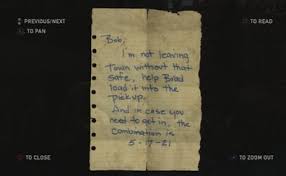 PREVIOUS/NEXT
TO PAN
TO READ
Bob,
I'm not leaving
Town without that
safe, help Brad
load it into the
pickup.
And in case you
need to get in, the
combination is
5-17-21
TO CLOSE
TO ZOOM OUT